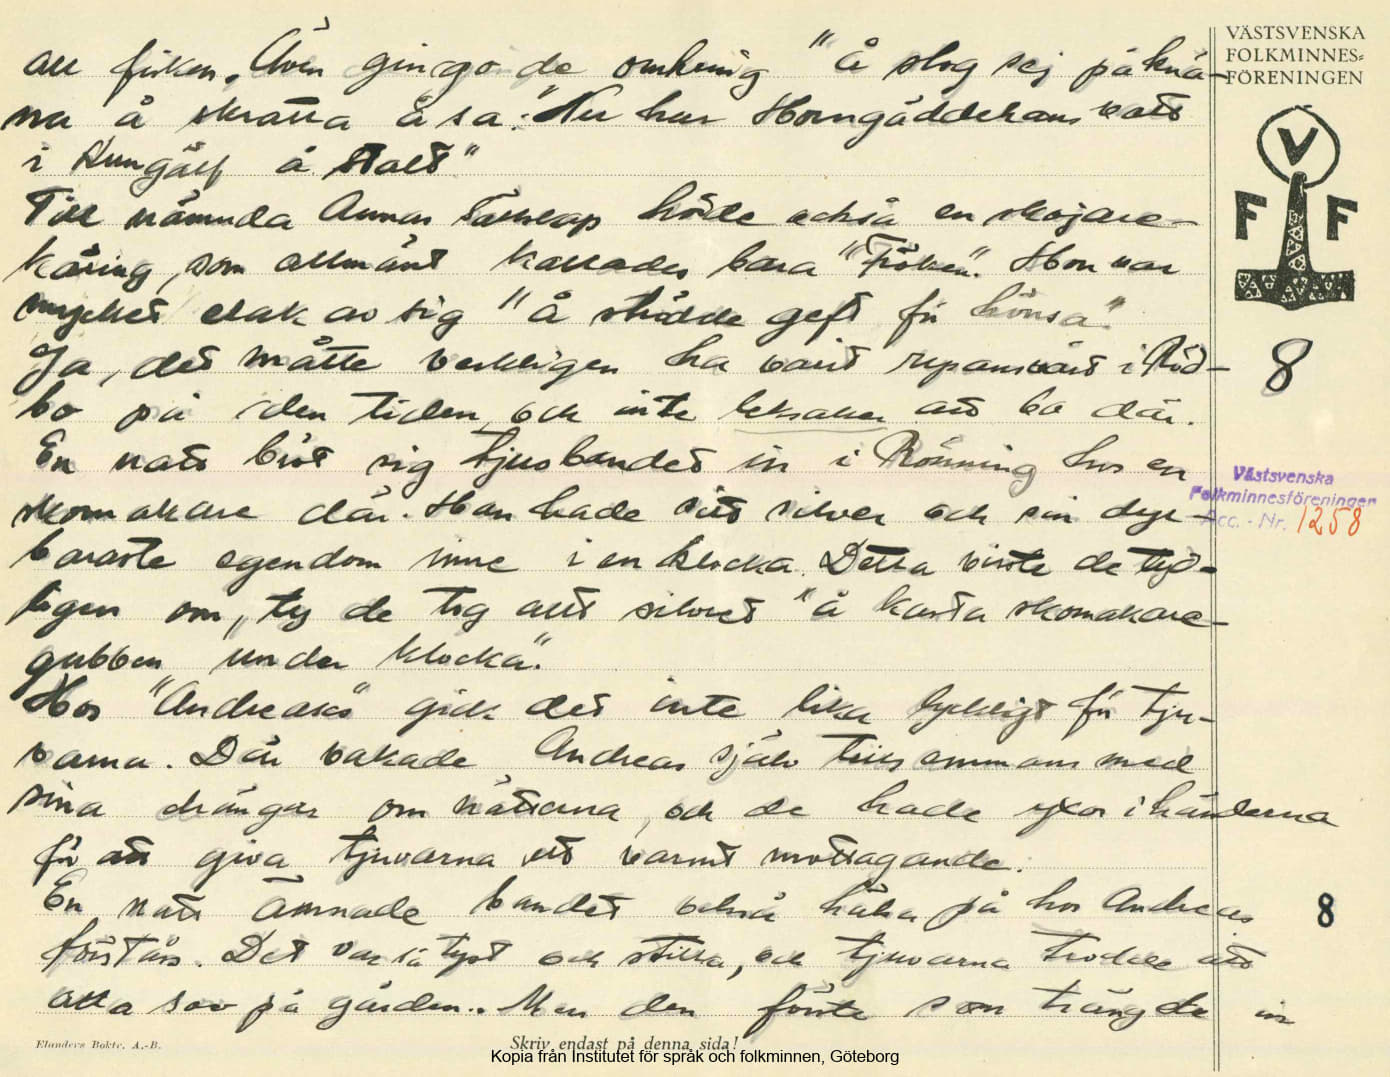 all fisken. Även gingo de omkring "å slog sej på knä-
na å skratta å sa: "Nu har Horngäddehans vatt
i Kungälf å stalt"
Till nämnda Annas sällskap hörde också en skojare-
käring, som allmänt kallades bara "Fröken". Hon var
mycket elak av sig "å strödde geft för hönsa".
Ja, det måtte verkligen ha varit repansvärt i Röd-
bo på den tiden, och inte leksaker att bo där.
En natt bröt sig tjuvbandet in i Rönning hos en
skomakare där. Han hade sitt silver och sin dyr-
baraste egendom inne i en klocka. Detta visste de tyd-
ligen om, ty de tog allt silvret "å kasta skomakare-
gubben under klocka".
Hos "Andreas" gick det inte lika lyckligt för tju-
varna. Där vakade Andreas själv tillsammans med
sina drängar om nätterna, och de hade yxor i händerna
för att giva tjuvarna ett varmt mottagande.
En natt ämnade bandet också hälsa på hos Andreas
förstås. Det var så tyst och stilla, och tjuvarna trodde att
alla sov på gården. Men den förste som trängde in
VÄSTSVENSKA
FOLKMINNES-
FÖRENINGEN
V
F F
8
Västsvenska
Folkminnesföreningen
Acc. - Nr. 1258
8
Elanders Boktr. A.-B.
Skriv endast på denna sida!
Kopia från Institutet för språk och folkminnen, Göteborg